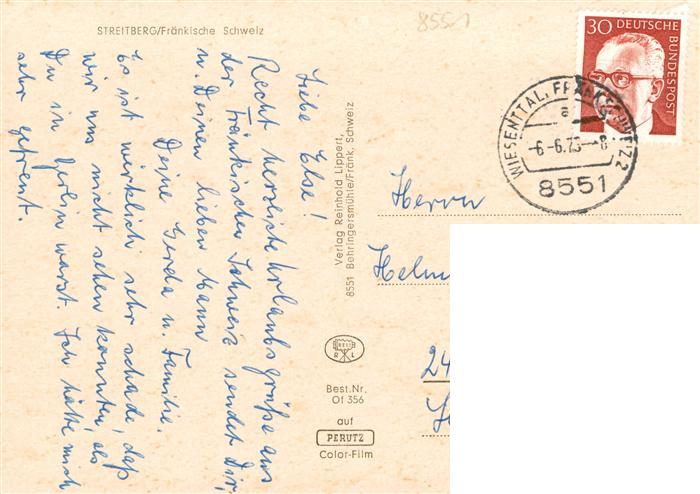 STREITBERG/Fränkische Schweiz
8551
30 DEUTSCHE BUNDESPOST
WIESENTTAL, FRÄNK SCHWEIZ 2
a
-6.-6.73--8
8551
Liebe Else!
Recht herzliche Urlaubsgrüße aus
der Fränkischen Schweiz sendet Dir,
u. Deinen lieben Mann
Deine Gerda u. Familie.
Es ist wirklich sehr schade, daß
wir uns nicht sehen konnten, als
Du in Berlin warst. Ich hätte mich
sehr gefreut.
Verlag Reinhold Lippert
8551 Behringersmühle/Fränk. Schweiz
RELI
R L
Best.Nr.
Of 356
auf
PERUTZ
Color-Film
Herrn
Helm
24